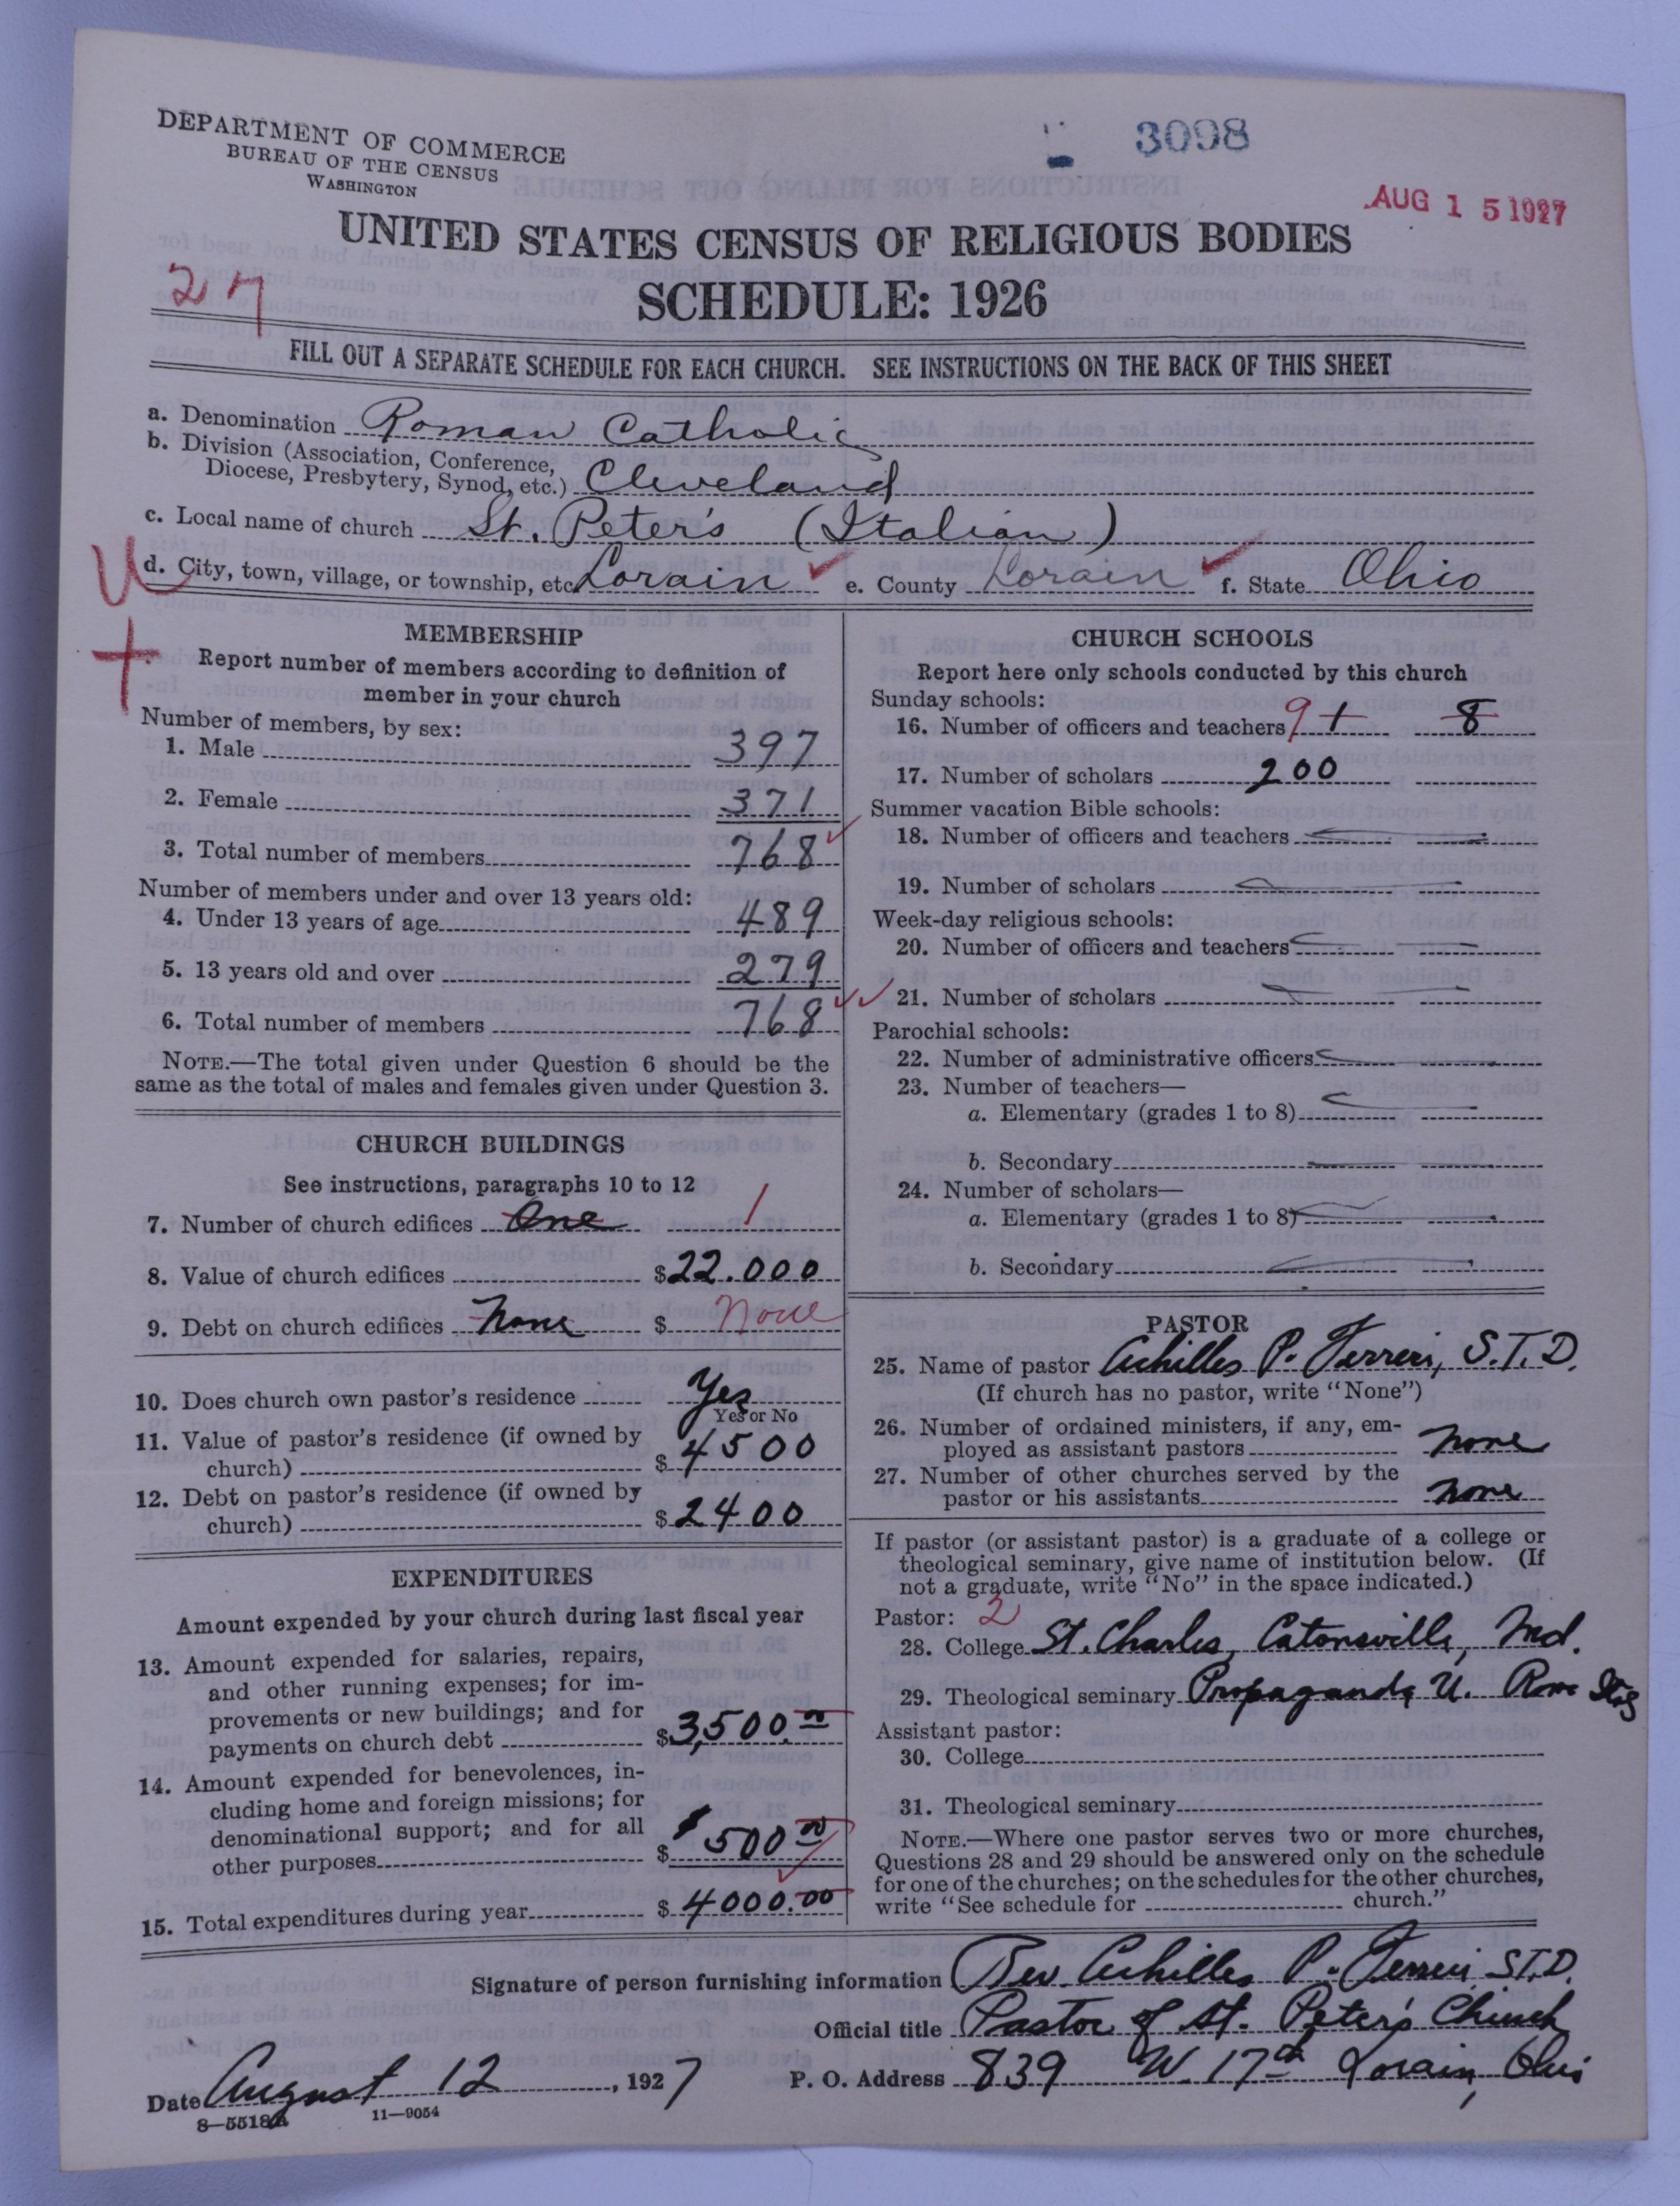 DEPARTMENT OF COMMERCE
BUREAU OF THE CENSUS
WASHINGTON
3098
AUG 15 1927
UNITED STATES CENSUS OF RELIGIOUS BODIES
27
SCHEDULE: 1926
FILL OUT A SEPARATE SCHEDULE FOR EACH CHURCH. SEE INSTRUCTIONS ON THE BACK OF THIS SHEET
a. Denomination Roman Catholic
b. Division (Association, Conference,
Diocese, Presbytery, Synod, etc.) Cleveland
c. Local name of church St. Peter's (Italian)
d. City, town, village, or township, etc. Lorain e. County Lorain f. State Ohio
MEMBERSHIP
Report number of members according to definition of
member in your church
Number of members, by sex:
1. Male 397
2. Female 371
3. Total number of members 768
Number of members under and over 13 years old:
4. Under 13 years of age 489
5. 13 years old and over 279
6. Total number of members 768
NOTE.—The total given under Question 6 should be the
same as the total of males and females given under Question 3.
CHURCH BUILDINGS
See instructions, paragraphs 10 to 12
7. Number of church edifices One 1
8. Value of church edifices $22.000
9. Debt on church edifices None $ None
10. Does church own pastor's residence Yes
Yes or No
11. Value of pastor's residence (if owned by
church) $4500
12. Debt on pastor's residence (if owned by
church) $2400
EXPENDITURES
Amount expended by your church during last fiscal year
13. Amount expended for salaries, repairs,
and other running expenses; for im-
provements or new buildings; and for
payments on church debt $3,500.00
14. Amount expended for benevolences, in-
cluding home and foreign missions; for
denominational support; and for all
other purposes $ 500 00
15. Total expenditures during year $ 4000.00
CHURCH SCHOOLS
Report here only schools conducted by this church
Sunday schools:
16. Number of officers and teachers 9 1 8
17. Number of scholars 200
Summer vacation Bible schools:
18. Number of officers and teachers
19. Number of scholars
Week-day religious schools:
20. Number of officers and teachers
21. Number of scholars
Parochial schools:
22. Number of administrative officers
23. Number of teachers—
a. Elementary (grades 1 to 8)
b. Secondary
24. Number of scholars—
a. Elementary (grades 1 to 8)
b. Secondary
PASTOR
25. Name of pastor Achilles P. Ferreri, S.T.D.
(If church has no pastor, write "None")
26. Number of ordained ministers, if any, em-
ployed as assistant pastors none
27. Number of other churches served by the
pastor or his assistants none
If pastor (or assistant pastor) is a graduate of a college or
theological seminary, give name of institution below. (If
not a graduate, write "No" in the space indicated.)
Pastor: 2
28. College St. Charles, Catonsville, Md.
29. Theological seminary Propaganda U. Rome
Assistant pastor:
30. College
31. Theological seminary
NOTE.—Where one pastor serves two or more churches,
Questions 28 and 29 should be answered only on the schedule
for one of the churches; on the schedules for the other churches,
write "See schedule for church."
Signature of person furnishing information Rev. Achilles P. Ferreri S.T.D.
Official title Pastor of St. Peter's Church
Date August 12, 1927 P. O. Address 839 W. 17th Lorain, Ohio
8—5518a 11—9054